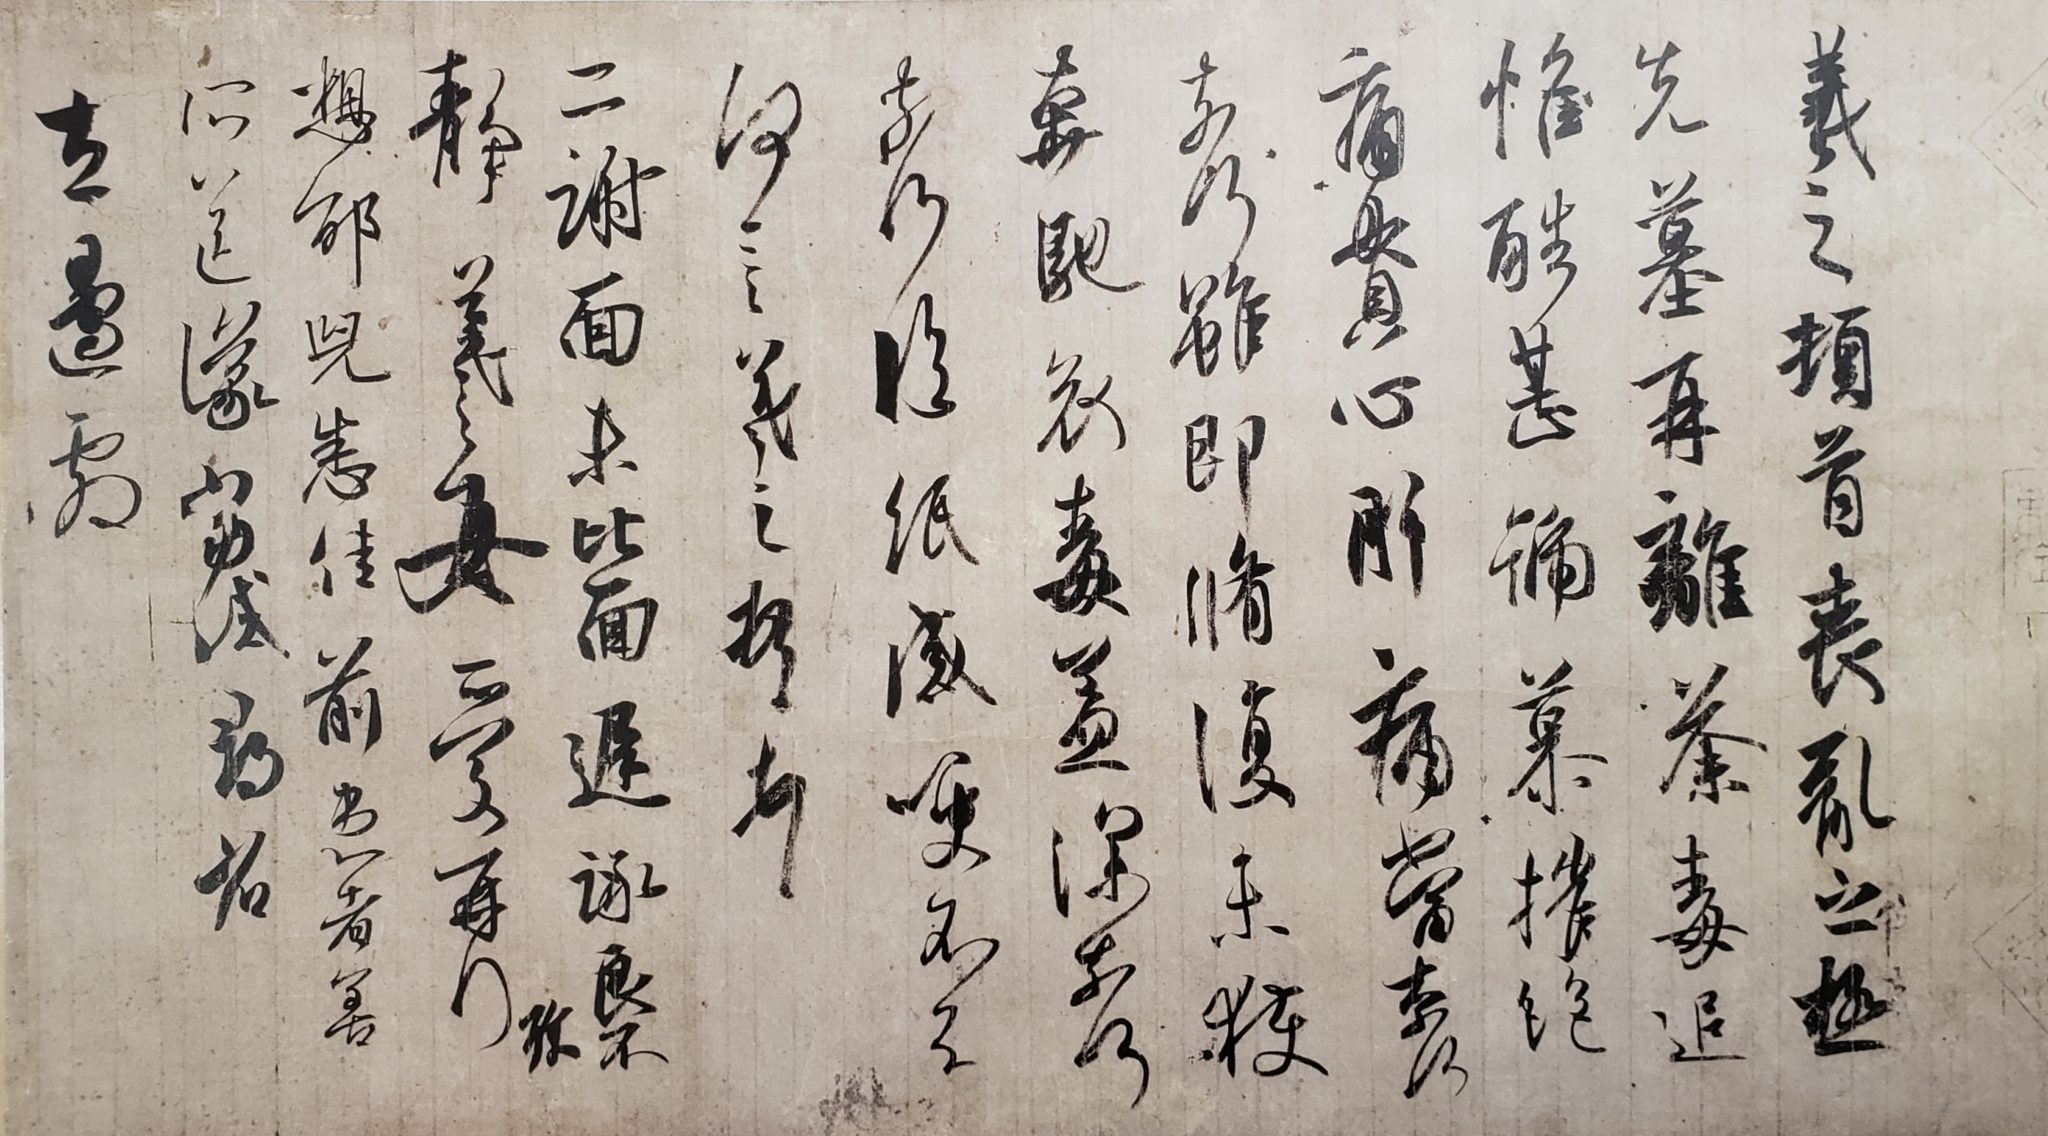 羲之頓首喪亂之極
先墓再離荼毒追
惟酷甚號慕摧絶
痛貫心肝痛當奈何
奈何雖即脩復未獲
奔馳哀毒益深奈何
奈何臨紙感哽不知
何言羲之頓首頓首
二謝面未比面遲詠良不
靜羲之女愛再拜
想邵兒悉佳前患者善
所送議當試尋省
左邊劇